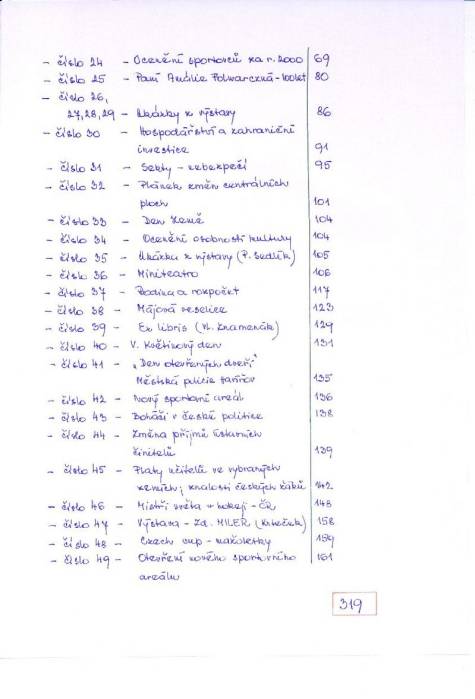 - číslo 24 - Ocenění sportovců za r. 2000 69
- číslo 25 - Paní Amálie Polwarczná - 100let 80
- číslo 26,
27, 28, 29 - Ukázky z výstavy 86
- číslo 30 - Hospodářství a zahraniční
investice 91
- číslo 31 - Sekty - nebezpečí 95
- číslo 32 - Plánek změn centrálních
ploch 101
- číslo 33 - Den Země 104
- číslo 34 - Ocenění osobnosti kultury 104
- číslo 35 - Ukázka z výstavy (P. Sedlík) 105
- číslo 36 - Miniteatro 106
- číslo 37 - Rodina a rozpočet 117
- číslo 38 - Májová veselice 123
- číslo 39 - Ex libris (Vl. Znamenák) 129
- číslo 40 - V. Květinový den 131
- číslo 41 - "Den otevřených dveří"
Městská policie 135
- číslo 42 - Nový sportovní areál 136
- číslo 43 - Boháči v české politice 138
- číslo 44 - Změna příjmů ústavních
činitelů 139
- číslo 45 - Platy učitelů ve vybraných
zemích; znalosti českých žáků 142
- číslo 46 - Mistři světa v hokeji - ČR 148
- číslo 47 - Výstava - Zd. MILER (Krteček) 158
- číslo 48 - Czech cup - mažoretky 159
- číslo 49 - Otevření nového sportovního 161
areálu
319